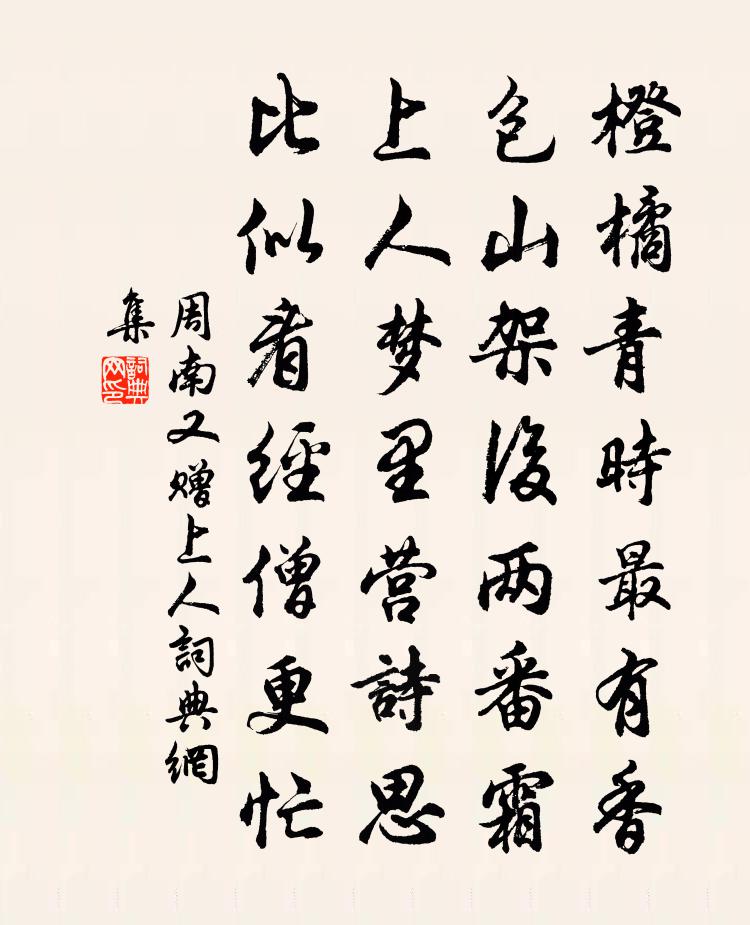 橙橘青時最有香
包山架後两番霜
上人梦里营詩思
比似看經僧更忙
周南又赠上人詞典網
集
詞典
网印